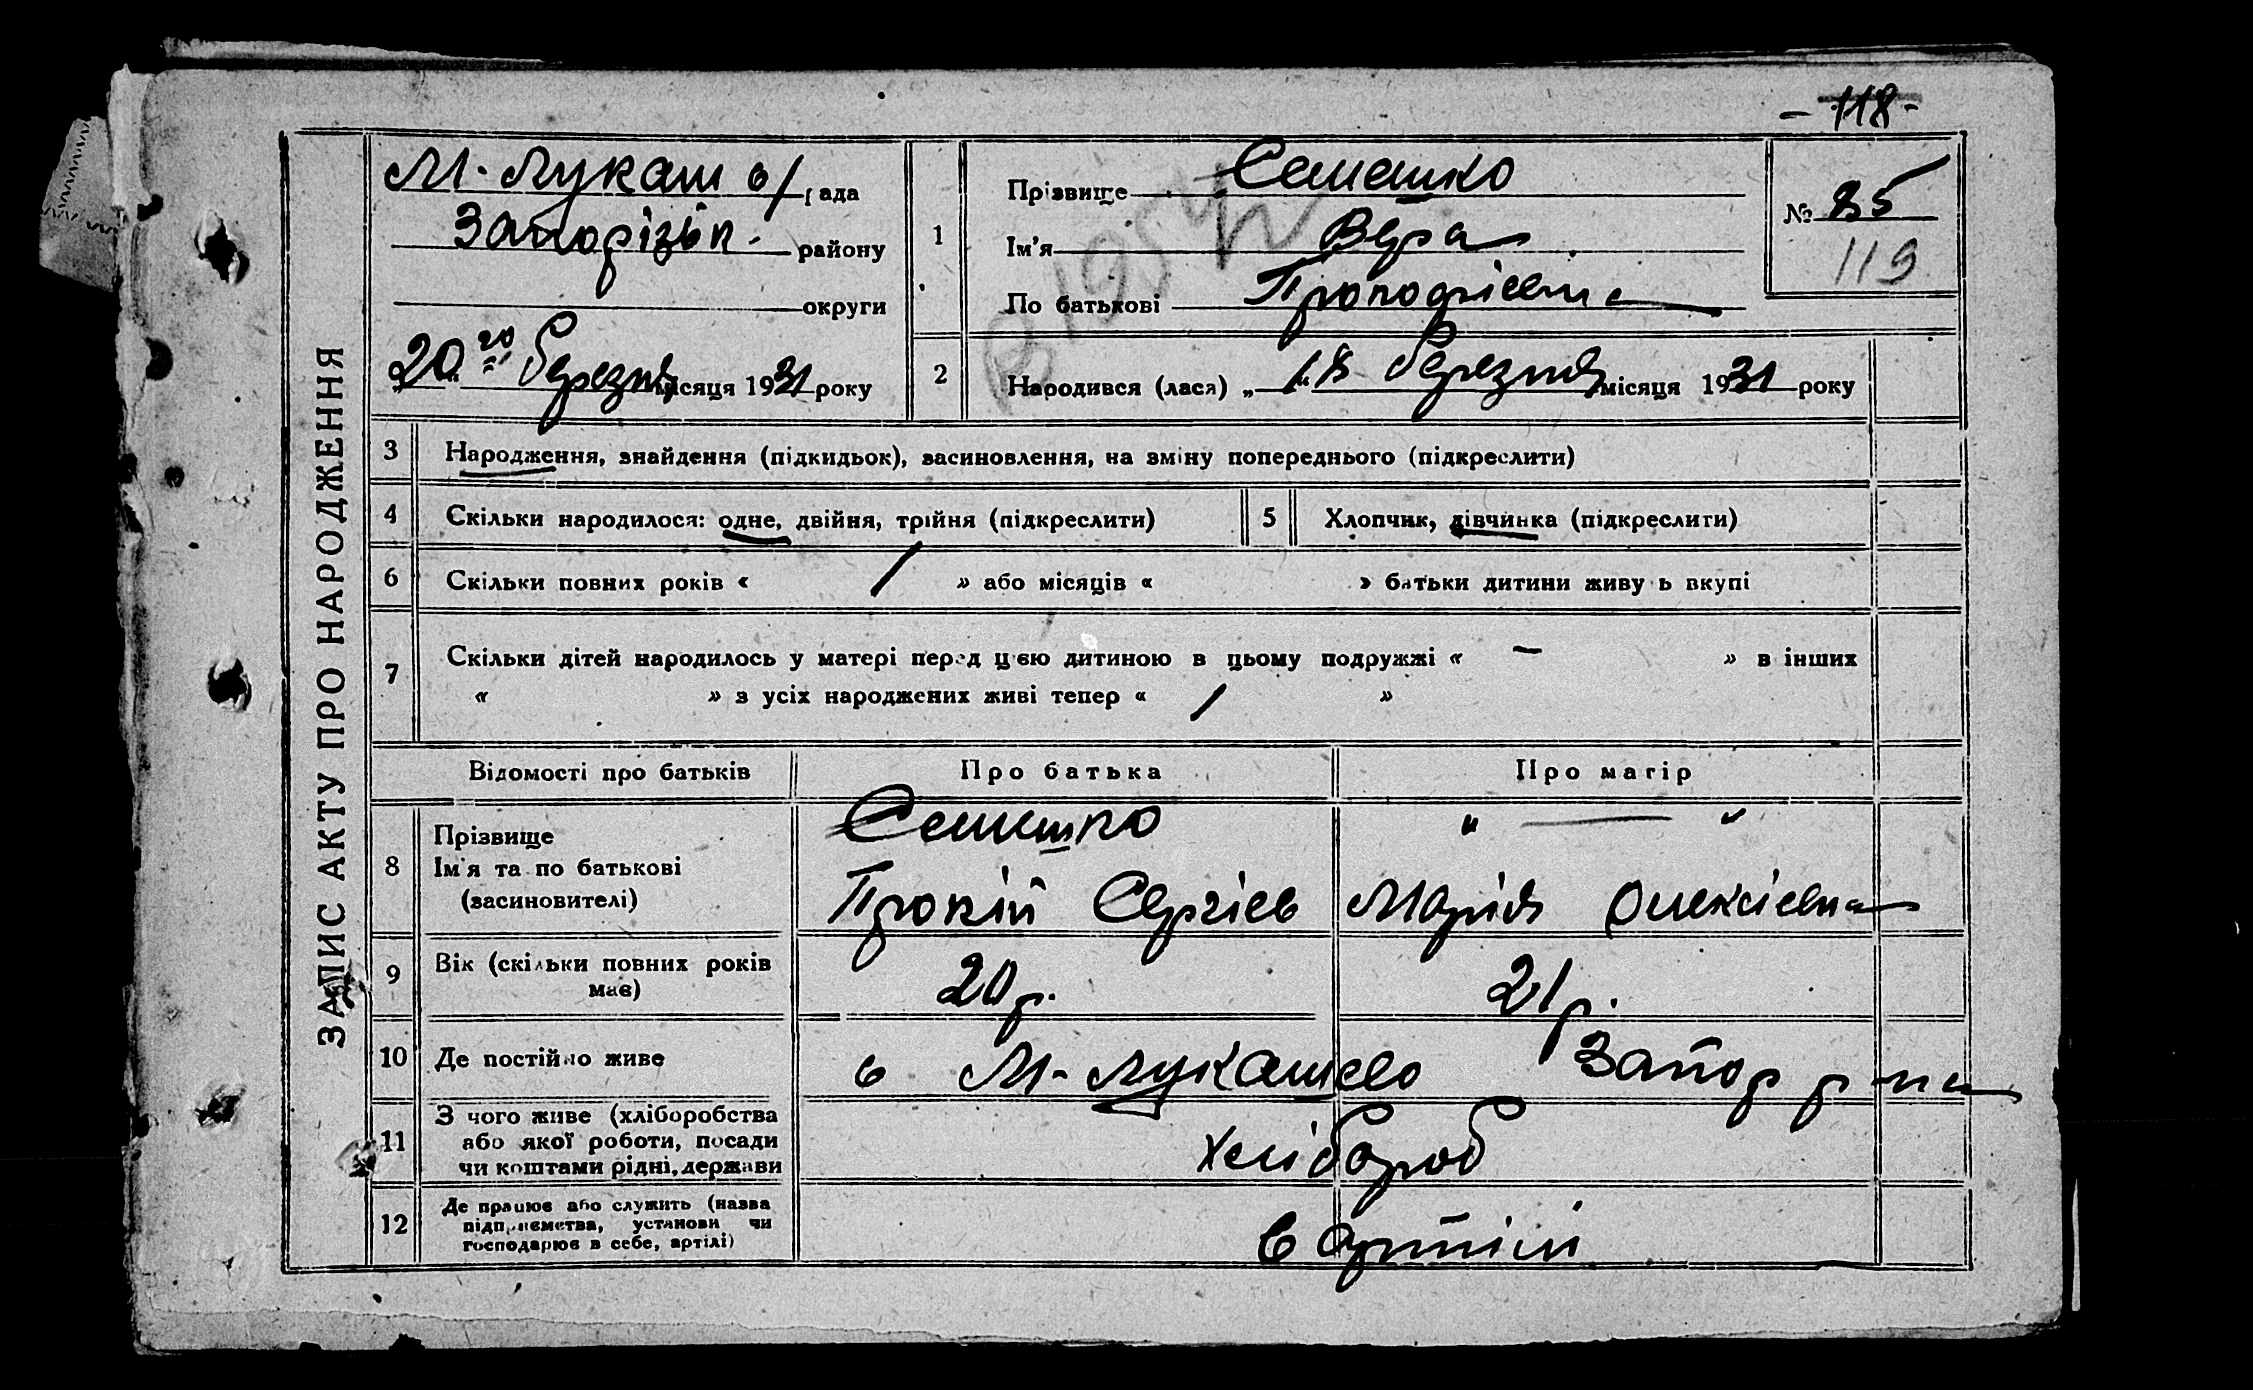 - 118 -
ЗАПИС АКТУ ПРО НАРОДЖЕННЯ
М. Лукаш с/рада
Запорізьк. району
округи
„20го“ березня місяця 1931 року
1
Прізвище Семешко
Ім'я Вера
По батькові
№ 85
119
2
Народився (лася) „18“ березня місяця 1931 року
3 Народження, знайдення (підкидьок), засиновлення, на зміну попереднього (підкреслити)
4 Скільки народилося: одне, двійня, трійня (підкреслити)
5 Хлопчик, дівчинка (підкреслити)
6 Скільки повних років « / » або місяців « » батьки дитини живуть вкупі
7 Скільки дітей народилось у матері перед цією дитиною в цьому подружжі « — » в інших
« » з усіх народжених живі тепер « / »
Відомості про батьків Про батька Про матір
8 Прізвище
Ім'я та по батькові
(засиновителі)
Семешко " — "
Прокій Сергіев Марія Олексіевна
9 Вік (скільки повних років має)
20 р. 21 р.
10 Де постійно живе
в М-Лукашево Запор р-на
11 З чого живе (хліборобства або якої роботи, посади чи коштами рідні, держави
Хлібороб
12 Де працює або служить (назва підприємства, установи чи господарює в себе, артілі)
в артілі